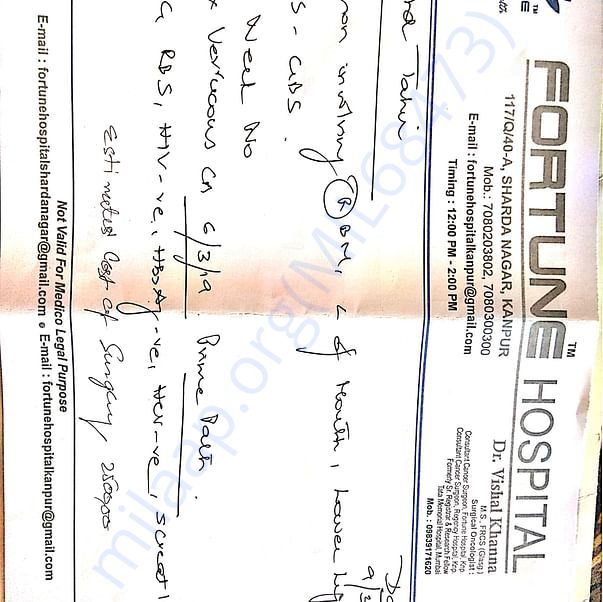 FORTUNE™ HOSPITAL
117/Q/40-A, SHARDA NAGAR, KANPUR
Mob.: 7080203802, 7080300300
E-mail : fortunehospitalkanpur@gmail.com
Timing : 12:00 PM - 2:00 PM
Dr. Vishal Khanna
M.S., FRCS (Glasg)
Surgical Oncologist
Consultant Cancer Surgeon, Fortune Hospital, Knp.
Consultant Cancer Surgeon, Regency Hospital, Knp.
Formerly Sr. Registrar & Research Fellow
Tata Memorial Hospital, Mumbai
Mob. : 09839171620
involving (R) BM, L of Mouth, Lower
S - GBS.
Neck No
Verrucous Ca 6/3/19. Prime Path.
RBS, HIV-ve, HBsAg-ve, HCV-ve, S creat
Estimated Cost of Surgery
Not Valid For Medico Legal Purpose
E-mail : fortunehospitalshardanagar@gmail.com • E-mail : fortunehospitalkanpur@gmail.com
milaap.org(MIL68473)